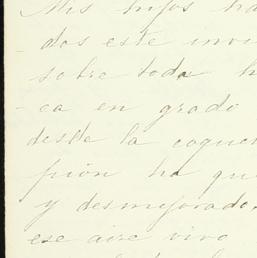 Mis hijos ha
dos este invi
sobre todo h
ca en grado
desde la coquel
pión ha que
y desmejorado,
ese aire vivo